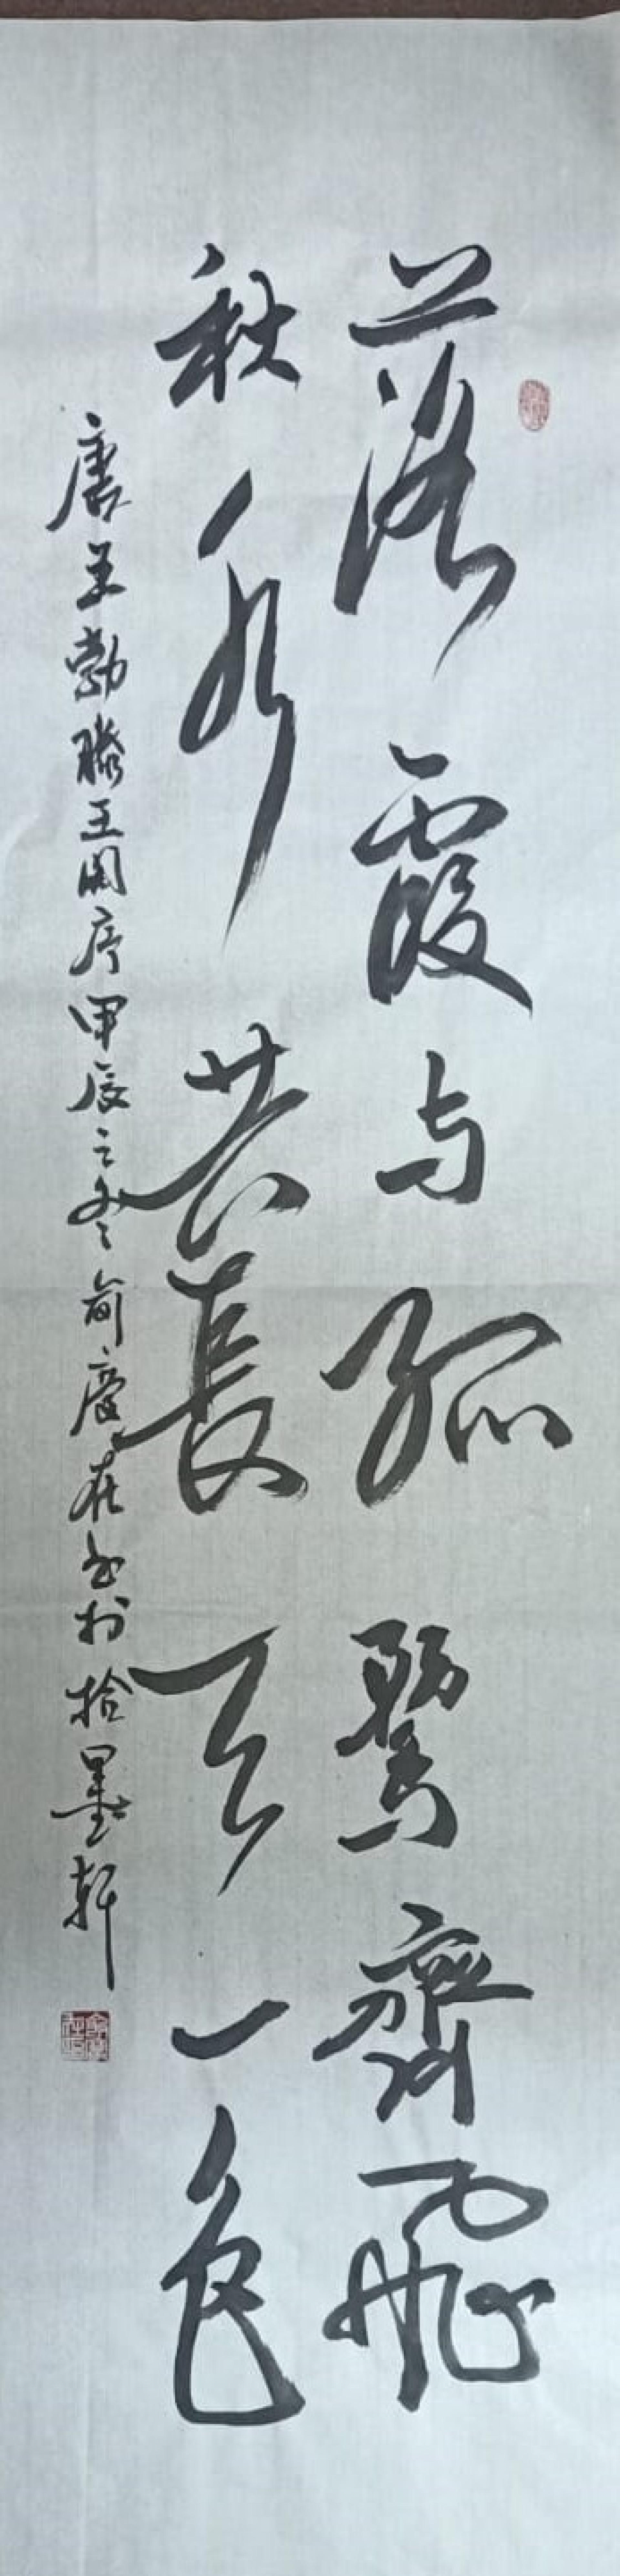 落霞与孤鹜齊飛
秋水共長天一色
唐王勃滕王阁序甲辰之冬俞慶在书於拾墨軒